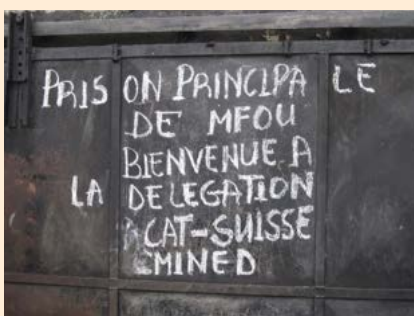 PRISON PRINCIPALE
DE MFOU
BIENVENUE A
LA DELEGATION
CAT-SUISSE
EMINED